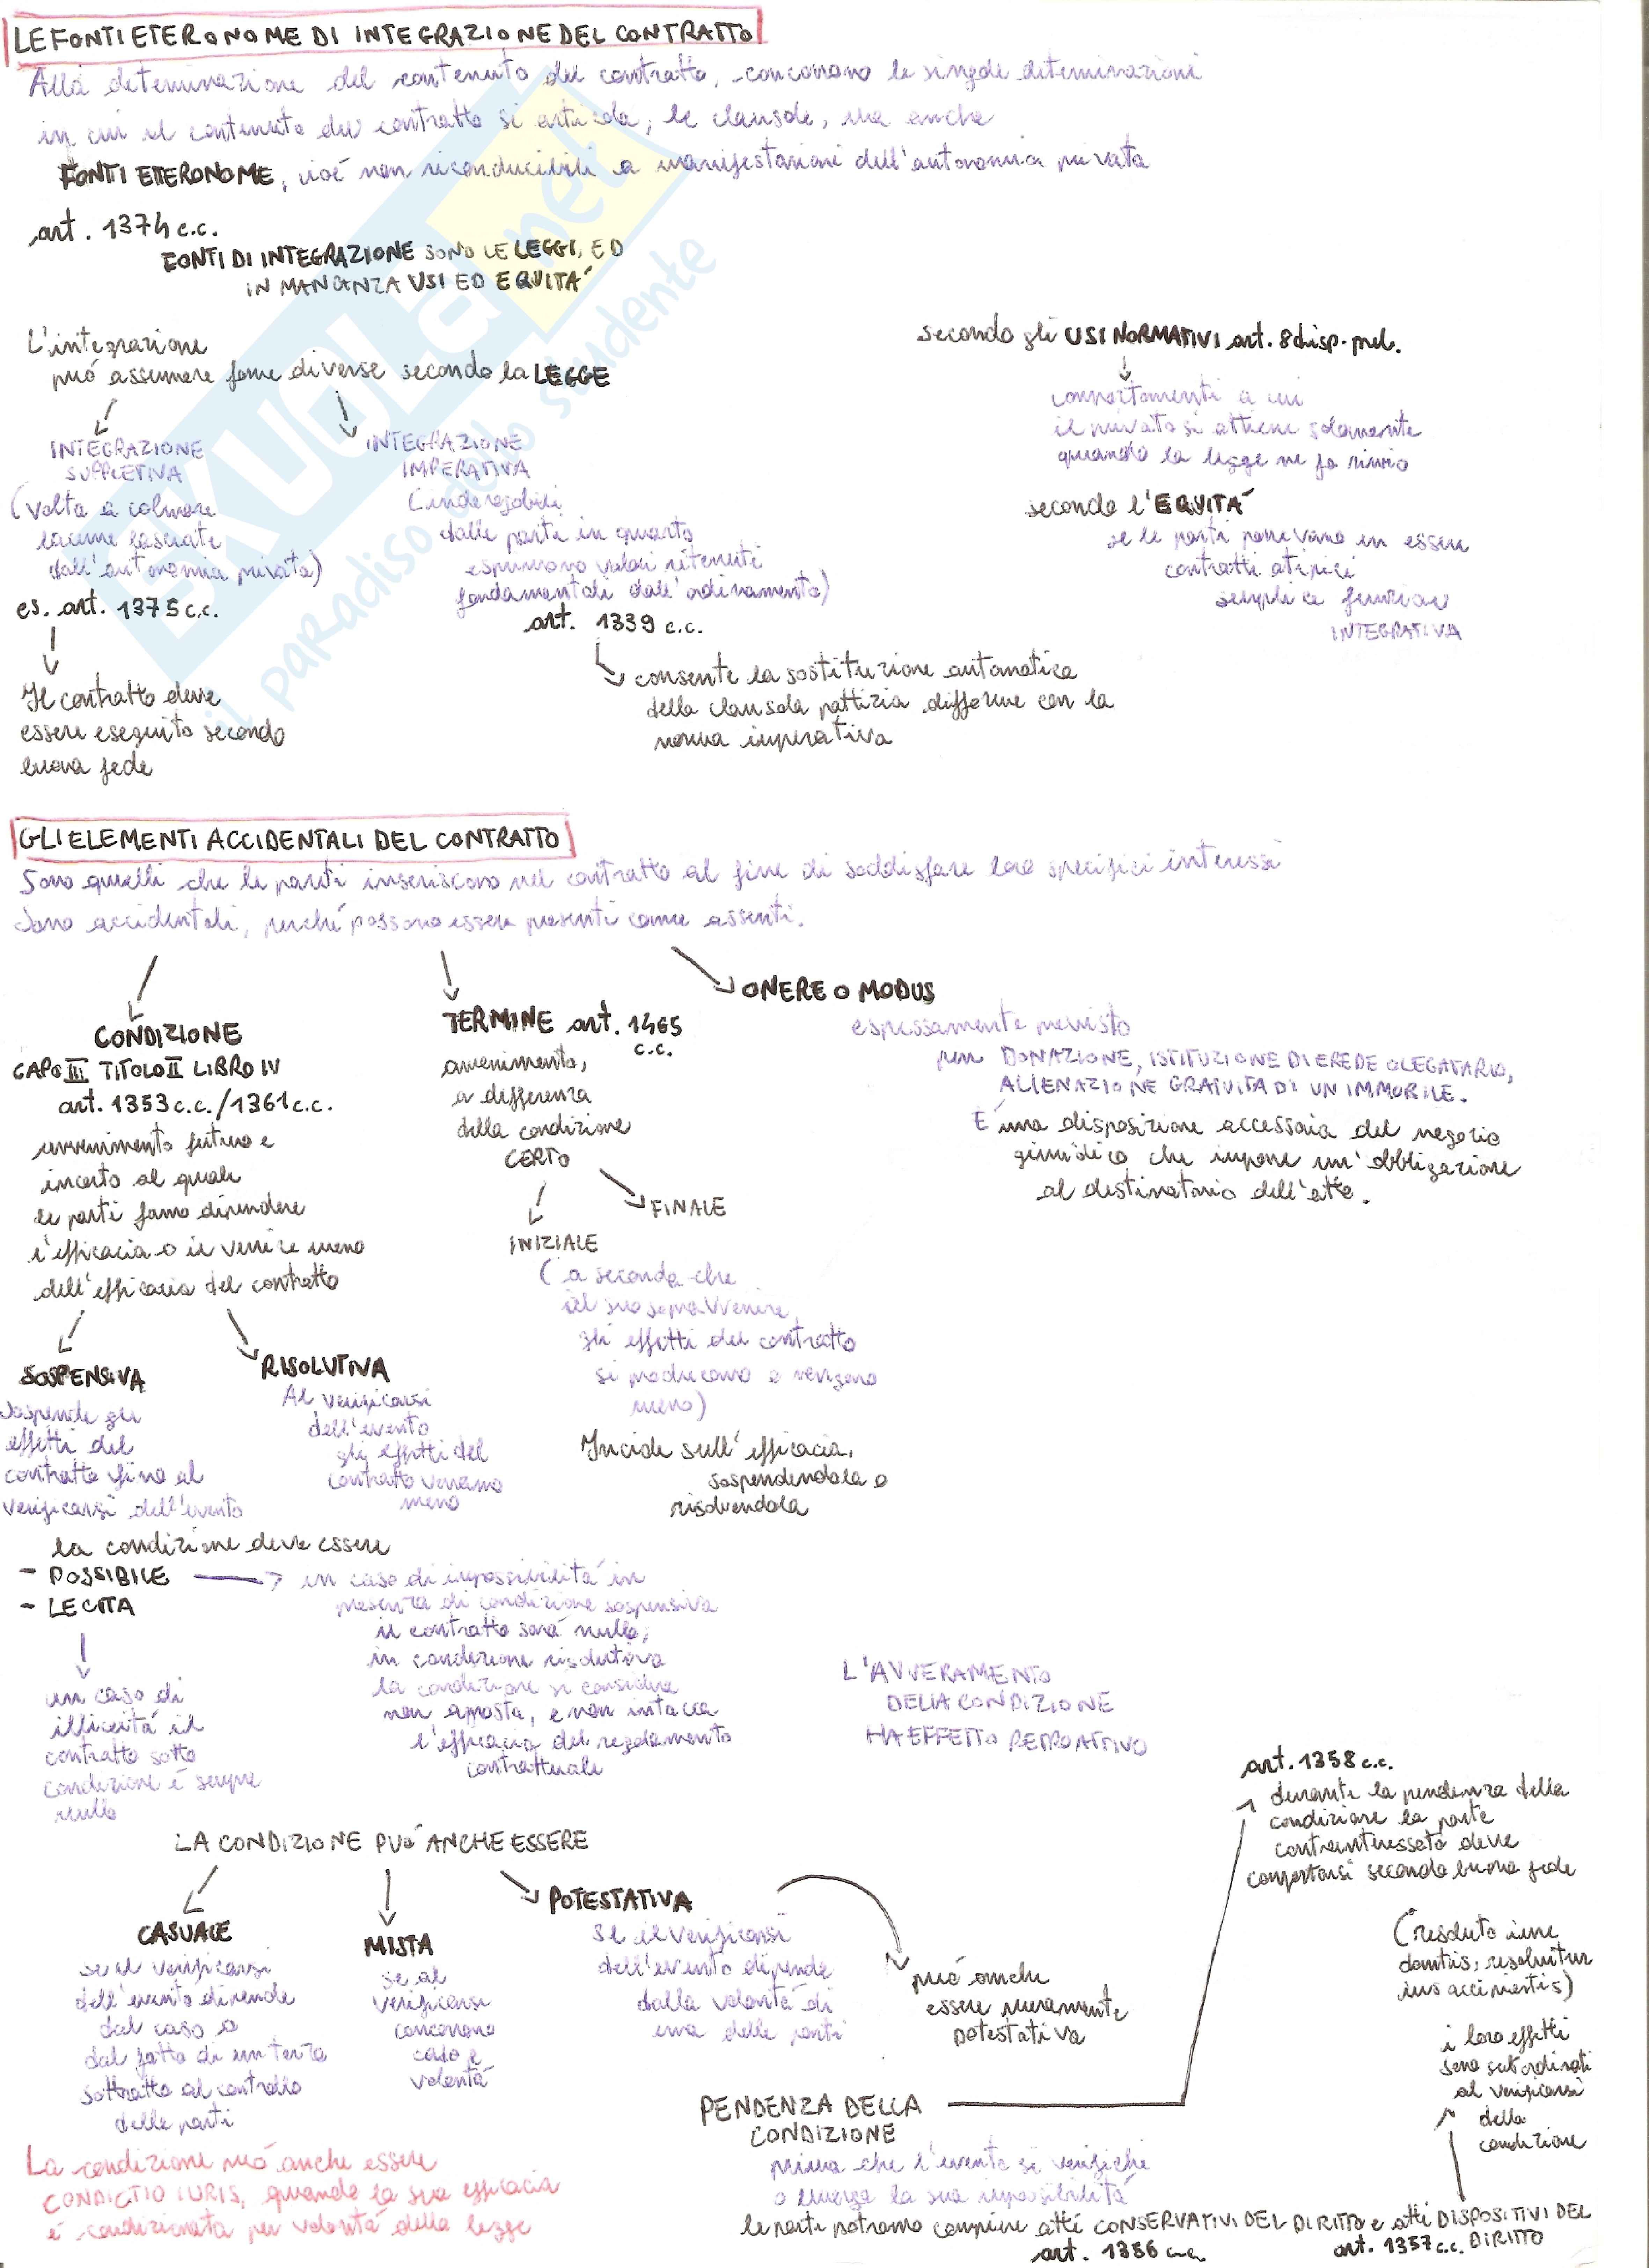 LE FONTI ETERONOME DI INTEGRAZIONE DEL CONTRATTO
Alla determinazione del contenuto del contratto, concorrono le singole determinazioni
in cui il contenuto del contratto si articola, le clausole, ma anche
FONTI ETERONOME, cioé non riconducibili a manifestazioni dell'autonomia privata
art. 1374 c.c.
FONTI DI INTEGRAZIONE SONO LE LEGGI, ED
IN MANCANZA USI ED EQUITÁ
L'integrazione
puó assumere forme diverse secondo la LEGGE
INTEGRAZIONE
SUPPLETIVA
(volta a colmare
lacune lasciate
dall'autonomia privata)
es. art. 1375 c.c.
Il contratto deve
essere eseguito secondo
buona fede
INTEGRAZIONE
IMPERATIVA
(inderogabili
dalle parti in quanto
esprimono valori ritenuti
fondamentali dall'ordinamento)
art. 1339 c.c.
consente la sostituzione automatica
della clausola pattizia difforme con la
norma imperativa
secondo gli USI NORMATIVI art. 8 disp. prel.
comportamenti a cui
il privato si attiene solamente
quando la legge ne fa rinvio
secondo l'EQUITÁ
se le parti ponevano in essere
contratti atipici
semplice funzione
INTEGRATIVA
GLI ELEMENTI ACCIDENTALI DEL CONTRATTO
Sono quelli che le parti inseriscono nel contratto al fine di soddisfare loro specifici interessi
Sono accidentali, perché possono essere presenti come assenti.
CONDIZIONE
CAPO III TITOLO II LIBRO IV
art. 1353 c.c./1361 c.c.
avvenimento futuro e
incerto al quale
le parti fanno dipendere
l'efficacia o il venire meno
dell'efficacia del contratto
SOSPENSIVA
Sospende gli
effetti del
contratto fino al
verificarsi dell'evento
RISOLUTIVA
Al verificarsi
dell'evento
gli effetti del
contratto verranno
meno
TERMINE art. 1465
c.c.
avvenimento,
a differenza
della condizione
CERTO
FINALE
INIZIALE
(a seconda che
al suo sopravvenire
gli effetti del contratto
si producono o vengono
meno)
Incide sull'efficacia,
sospendendola o
risolvendola
ONERE O MODUS
espressamente previsto
per DONAZIONE, ISTITUZIONE DI EREDE O LEGATARIO,
ALIENAZIONE GRATUITA DI UN IMMOBILE.
E una disposizione accessoria del negozio
giuridico che impone un'obbligazione
al destinatario dell'atto.
la condizione deve essere
- POSSIBILE
- LECITA
in caso di impossibilitá in
presenza di condizione sospensiva
il contratto sará nullo,
in condizione risolutiva
la condizione si considera
non apposta, e non intacca
l'efficacia del regolamento
contrattuale
in caso di
illiceitá il
contratto sotto
condizione é sempre
nullo
L'AVVERAMENTO
DELLA CONDIZIONE
HA EFFETTO RETROATTIVO
LA CONDIZIONE PUÓ ANCHE ESSERE
CASUALE
se il verificarsi
dell'evento dipende
dal caso o
dal fatto di un terzo
sottratto al controllo
delle parti
MISTA
se al
verificarsi
concorrono
caso e
volontá
POTESTATIVA
se il verificarsi
dell'evento dipende
dalla volontá di
una delle parti
puó anche
essere meramente
potestativa
art. 1358 c.c.
durante la pendenza della
condizione la parte
controinteressata deve
comportarsi secondo buona fede
(resoluto iure
dantis, resolvitur
ius accipientis)
i loro effetti
sono subordinati
al verificarsi
della
condizione
PENDENZA DELLA
CONDIZIONE
prima che l'evento si verifichi
o emerga la sua impossibilitá
le parti potranno compiere atti CONSERVATIVI DEL DIRITTO e atti DISPOSITIVI DEL
DIRITTO
art. 1356 c.c.
art. 1357 c.c.
La condizione puó anche essere
CONDICTIO IURIS, quando la sua efficacia
é condizionata per volontá della legge
SKUOLA.net
il paradiso dello studente